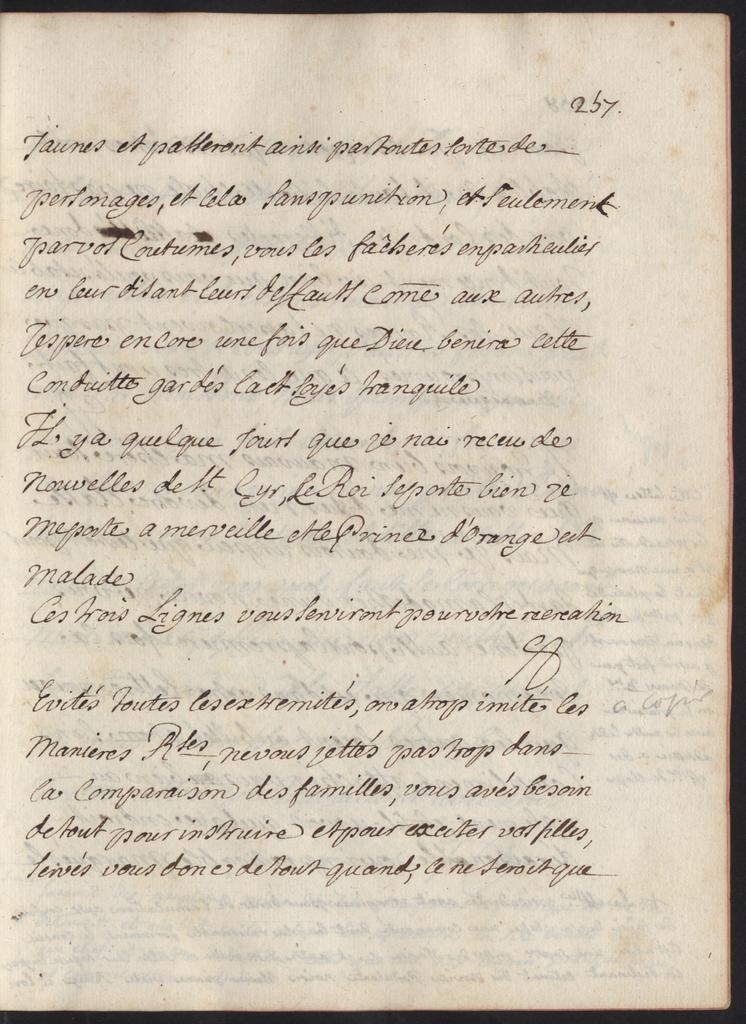 257.
Jaunes et passeront ainsi partoutes sorte de
personages, et cela sans punition, et seulement
par vos Coutumes, vous les fâcherés enparticulier
en leur disant leurs deffauts Come aux autres,
J'espere encore une fois que Dieu benira cette
Conduitte gardés la et soyés tranquile
Il ya quelque jours que je nai receu de
Nouvelles de St. Cyr, le Roi se porte bien je
me porte a merveille et le Prince d'Orange est
malade
Ces trois Lignes vous serviront pour votre recreation
Evités toutes les extremités, on a trop imité les
Manières Rses, ne vous jettés pas trop dans
la Comparaison des familles, vous avés besoin
de tout pour instruire et pour exciter vos filles,
servés vous donc de tout quand, ce ne seroit que
a Copié